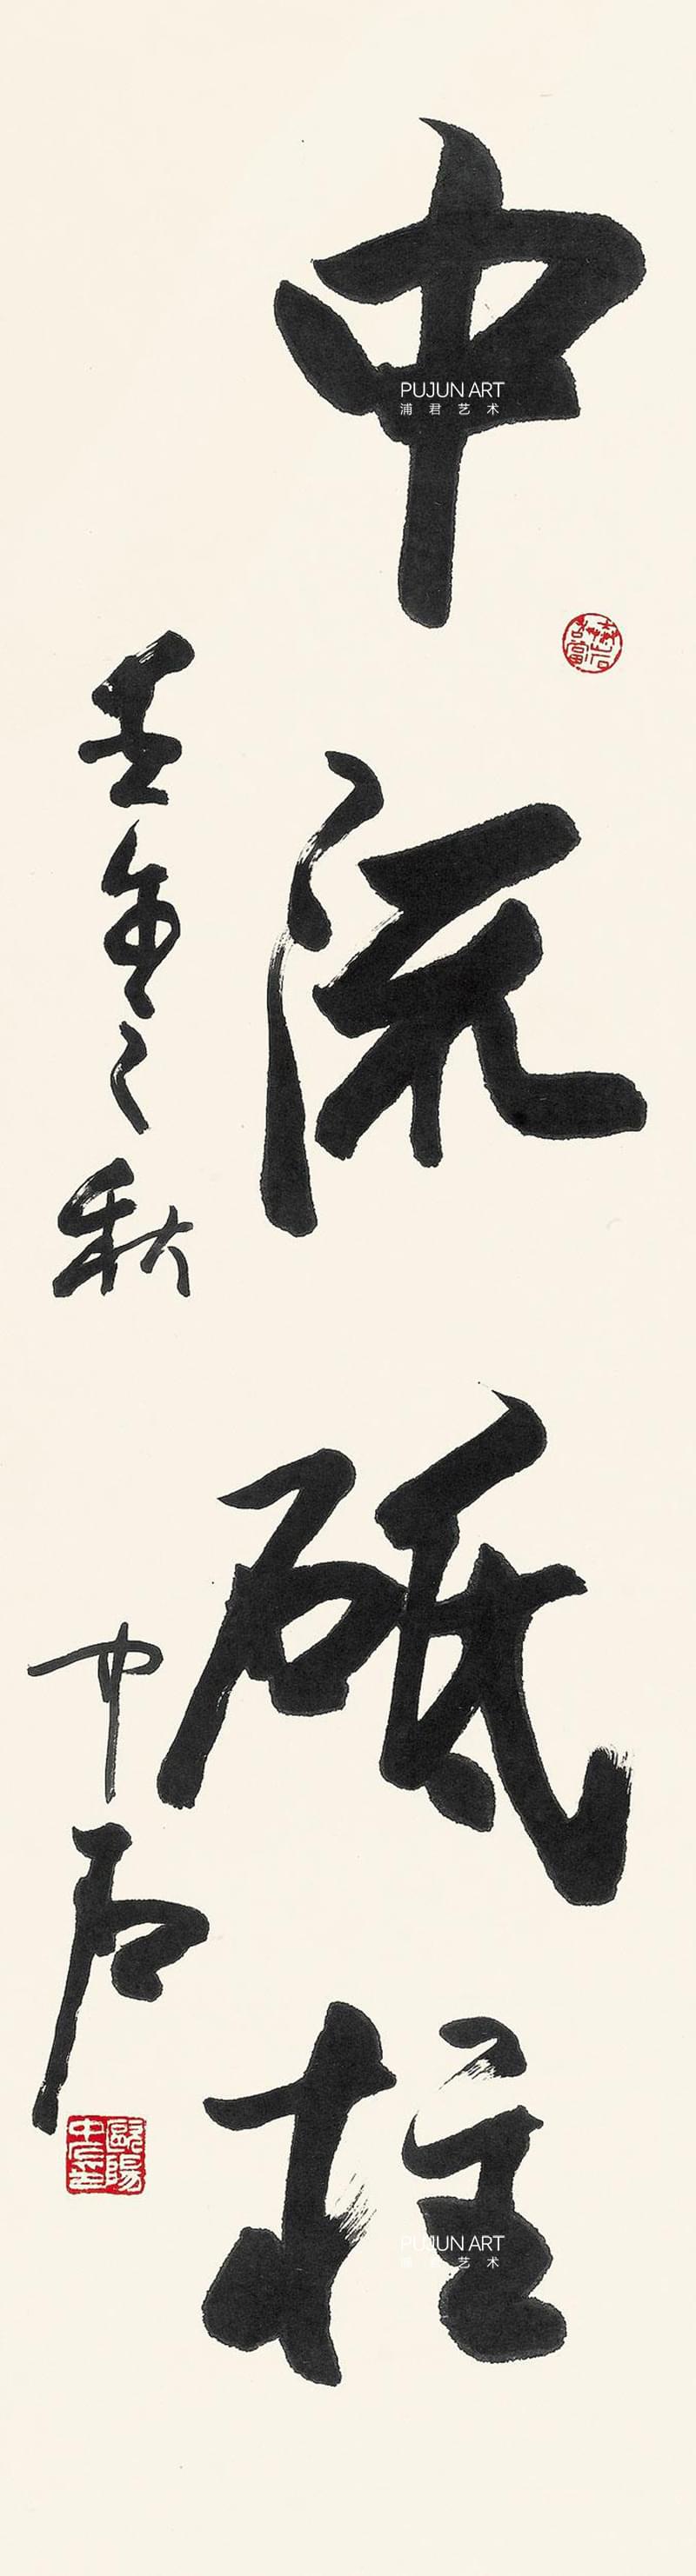 中流砥柱
壬午之秋
中石
歐陽中石
PUJUN ART
浦君艺术
PUJUN ART
浦君艺术